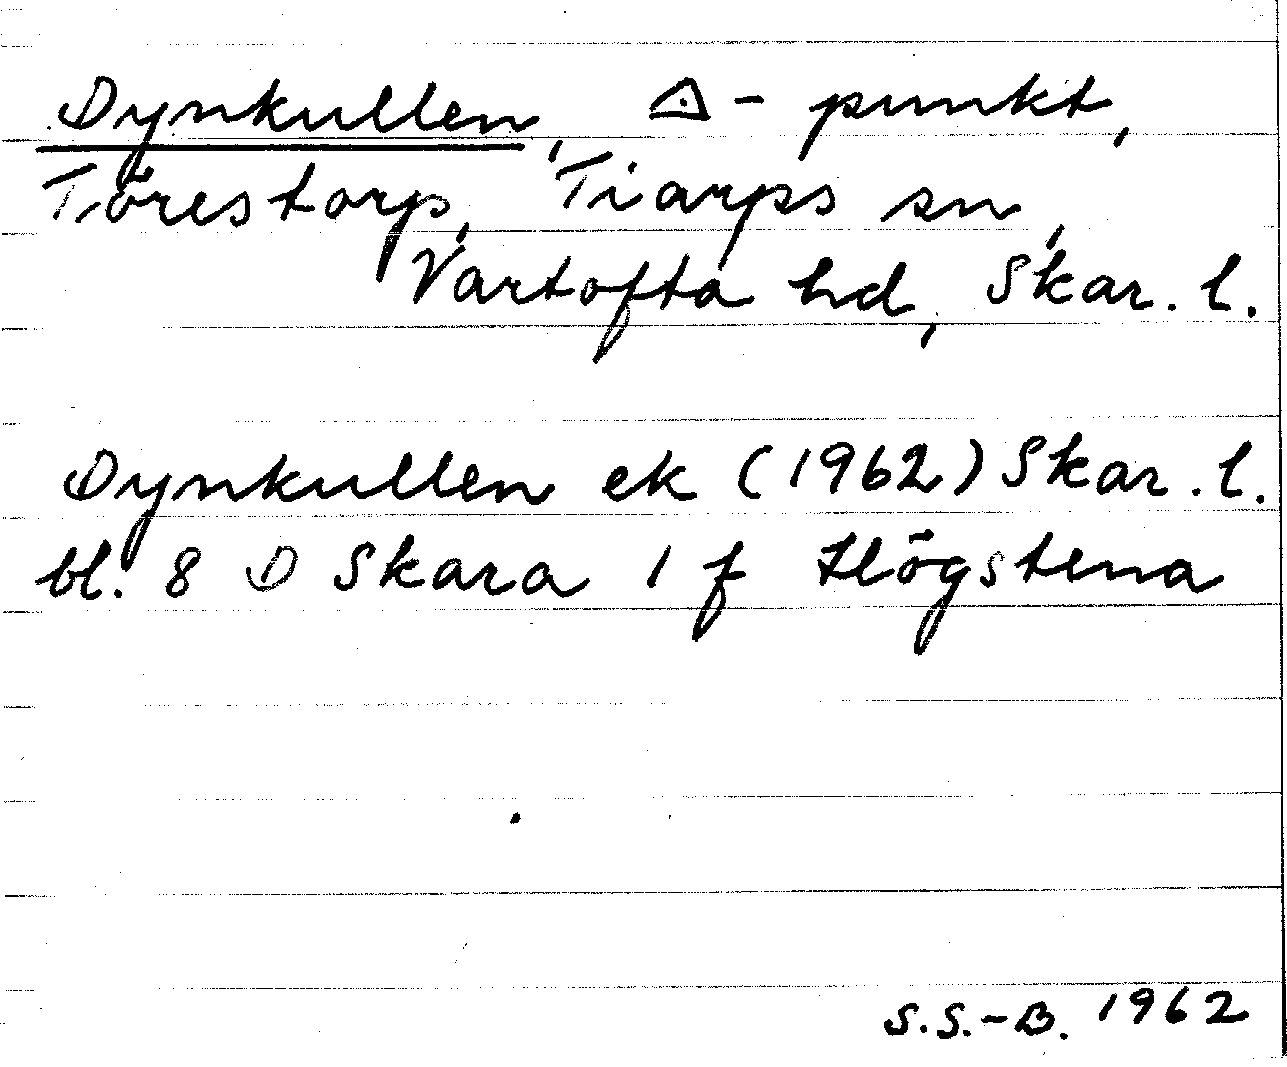 Dynkullen, △ - punkt,
Törestorp, Tiarps sn,
Vartofta hd, Skar. l.
Dynkullen ek (1962) Skar. l.
bl. 8 D Skara 1 f Högstena
S.S.-B. 1962